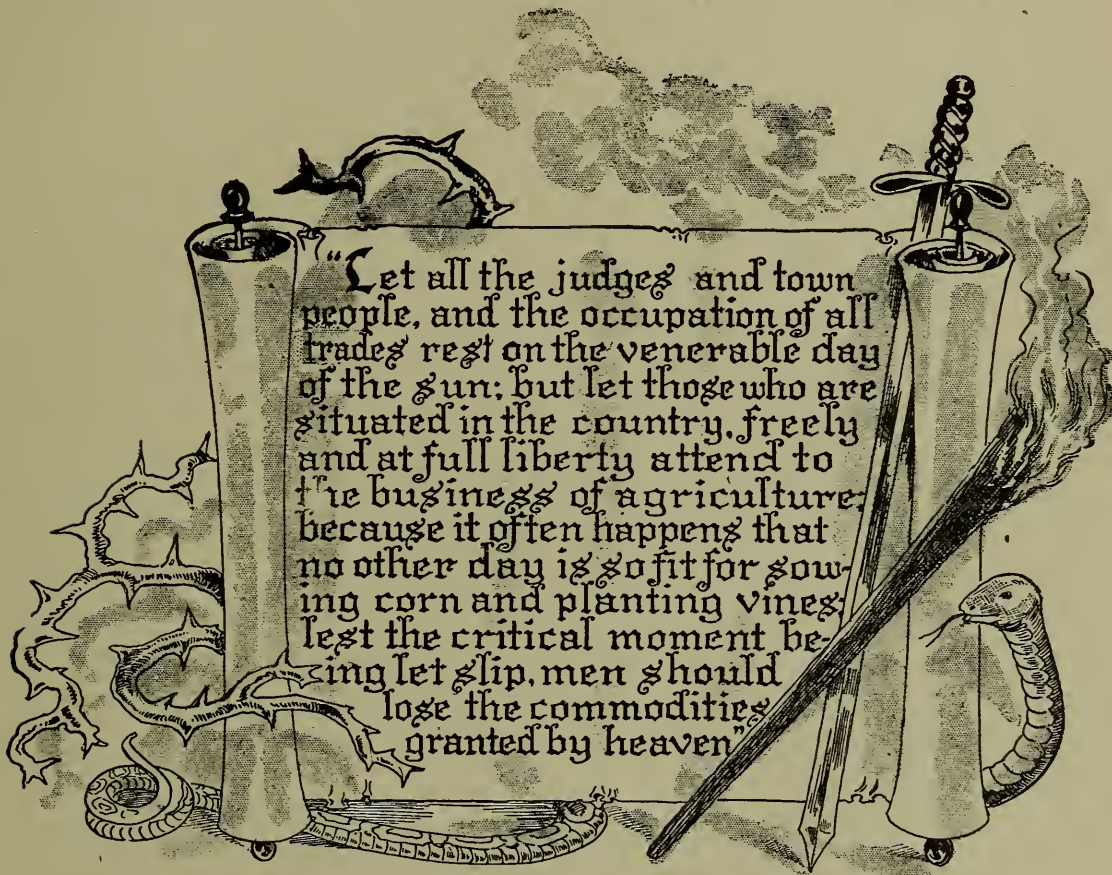 "Let all the judges and town
people, and the occupation of all
trades rest on the venerable day
of the sun; but let those who are
situated in the country, freely
and at full liberty attend to
the business of agriculture;
because it often happens that
no other day is so fit for sow-
ing corn and planting vines;
lest the critical moment be-
ing let slip, men should
lose the commodities
granted by heaven"